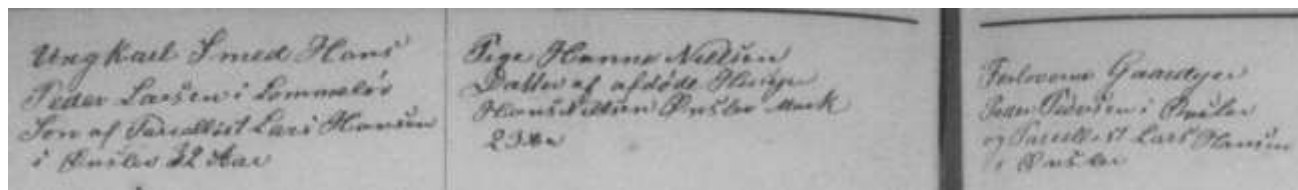 Ungkarl Smed Hans
Peder Larsen i Lommelev
Søn af Parcellist Lars Hansen
i Ønslev 32 Aar
Pige Hanne Nielsen
Datter af afdøde Husejer
Hans Nielsen Ønslev Mark
23 Aar
Forloverne Gaardejer
Peder Pedersen i Ønslev
og Parcellist Lars Hansen
i Ønslev